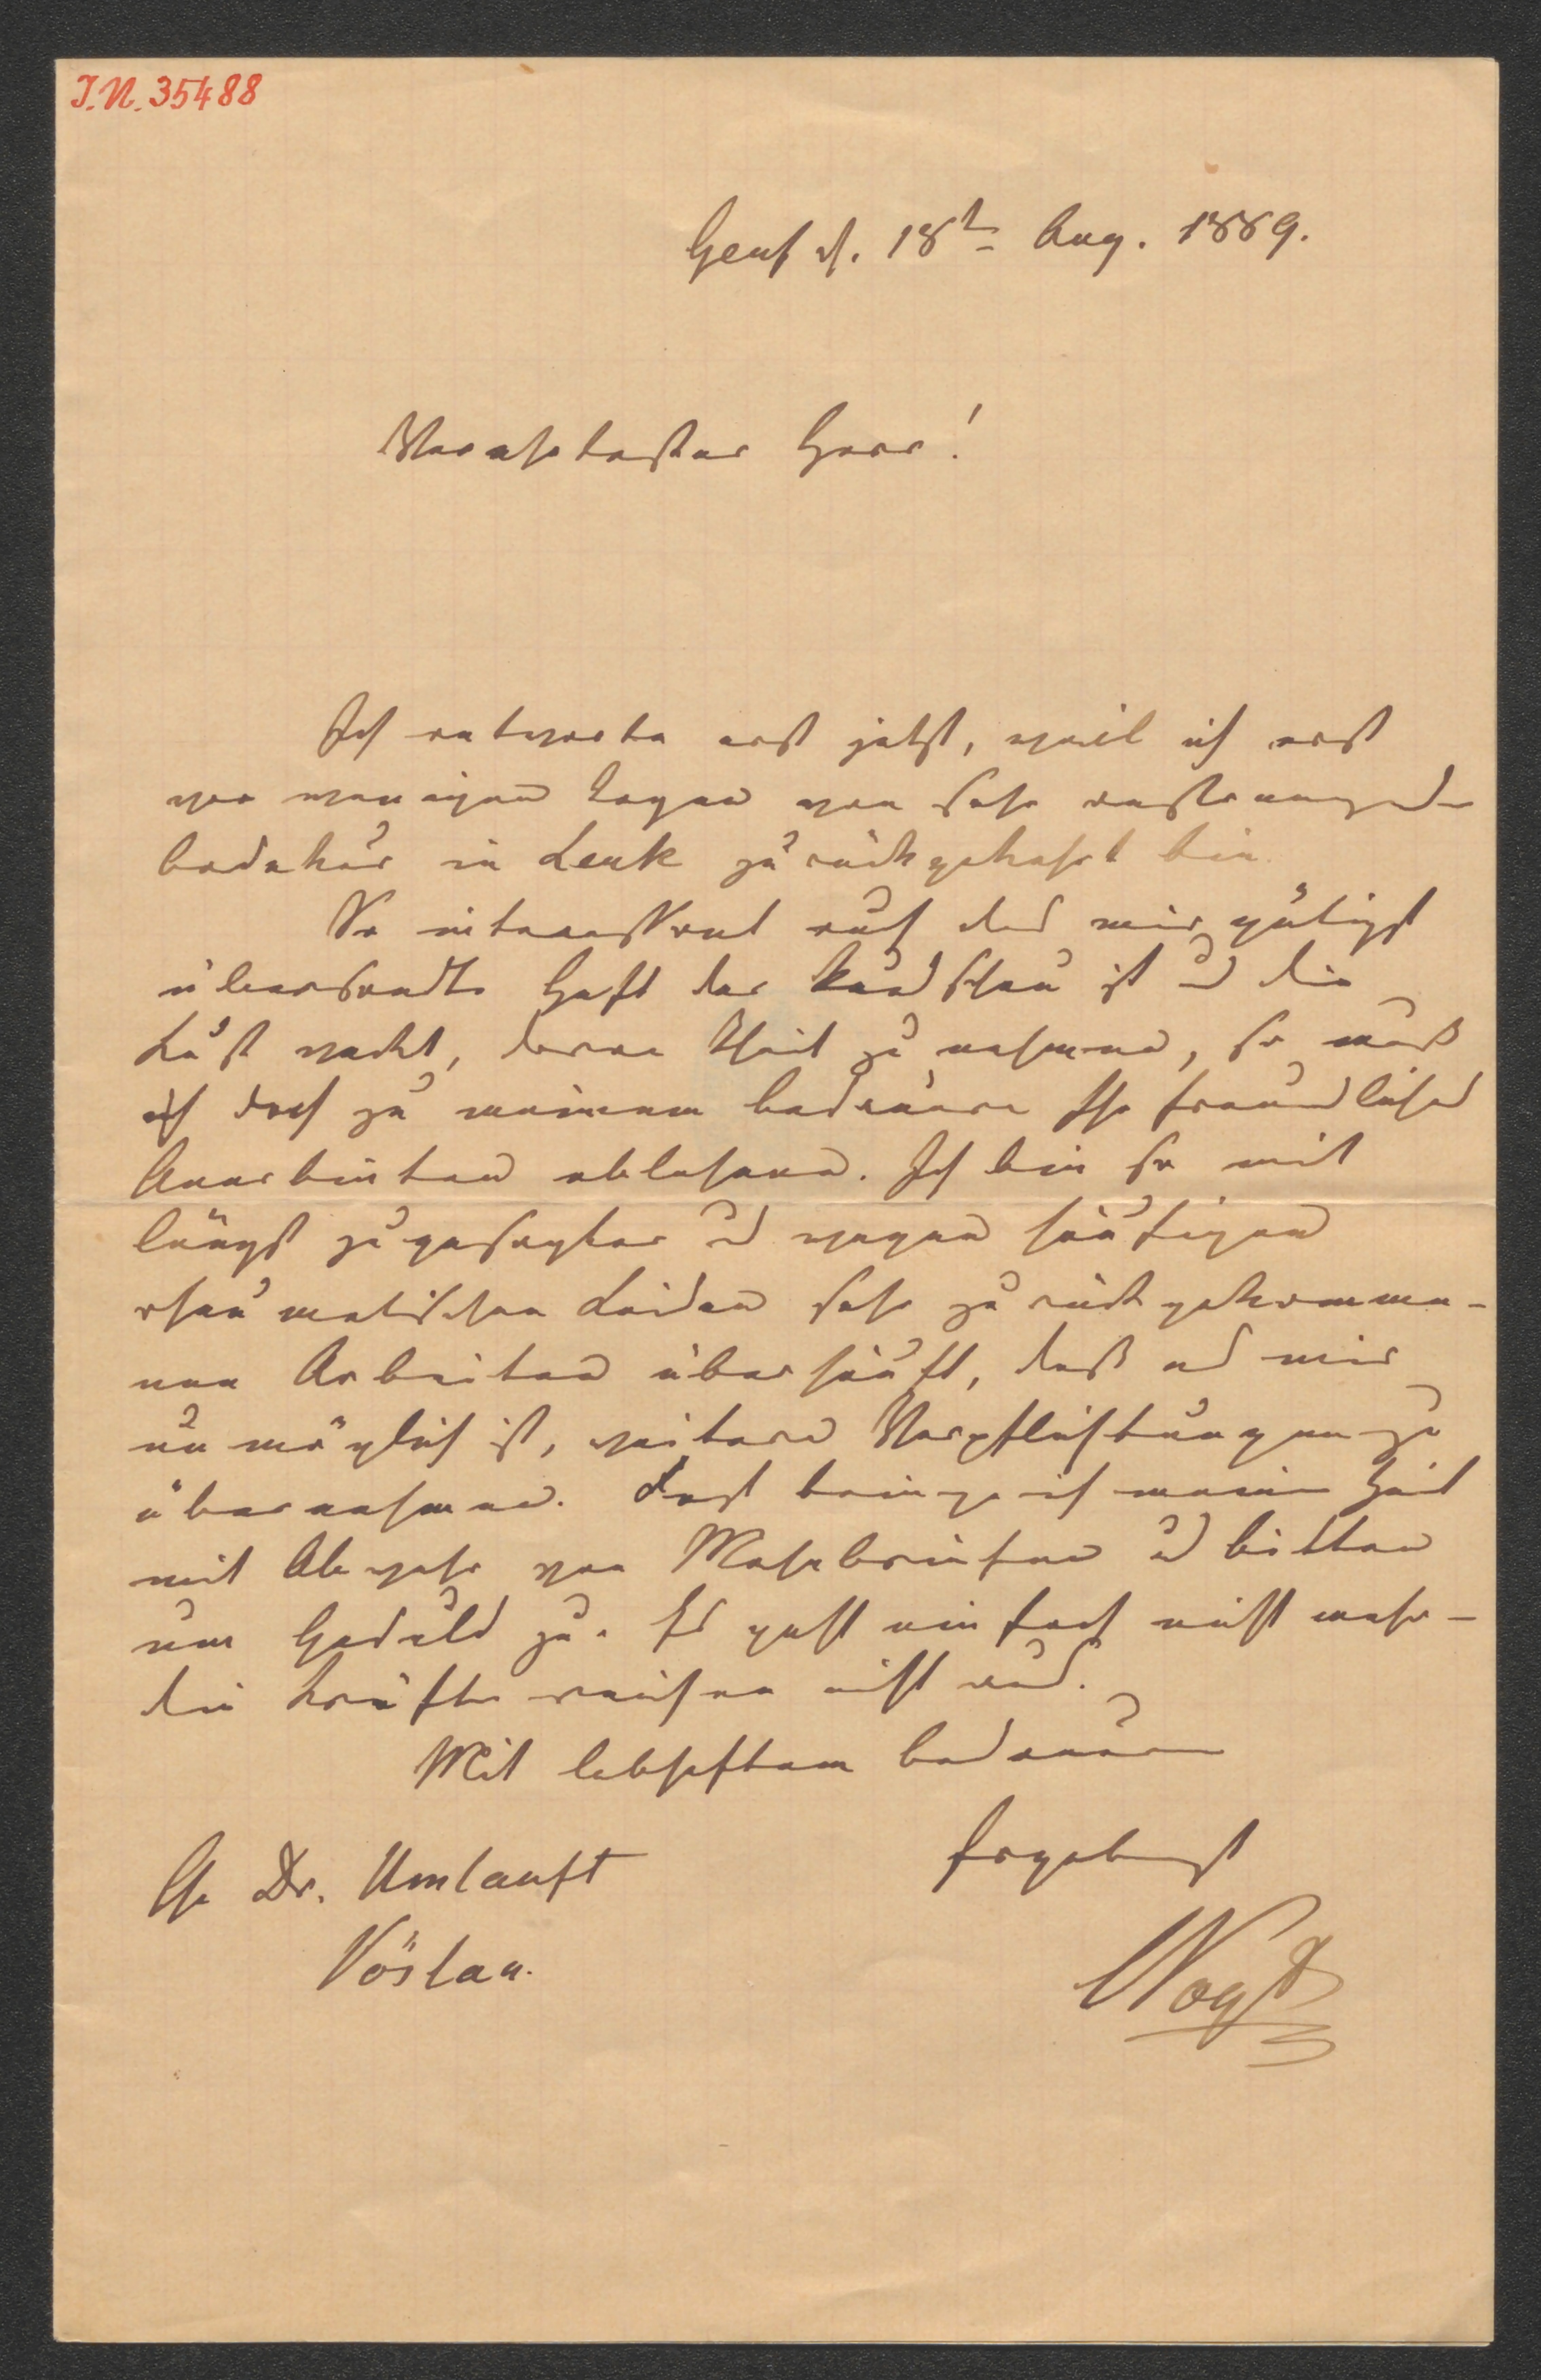 I.N. 35488
Genf d. 18t Aug. 1889.
Verehrtester Herr!
Ich antworte erst jetzt, weil ich erst
vor wenigen Tagen von sehr anstrengender
Badekur in Leuk zurückgekehrt bin.
So interessant auch das mir gütigst
übersandte Heft der Rundschau ist und die
Lust weckt, daran Theil zu nehmen, so muß
ich doch zu meinem Bedauern Ihr freundliches
Anerbieten ablehnen. Ich bin so mit
längst zugesagter und wegen häufigen
rheumatischen Leiden sehr zurückgekomme-
nen Arbeiten überhäuft, daß es mir
unmöglich ist, weitere Verpflichtungen zu
übernehmen. Fast bringe ich meine Zeit
mit Abwehr von Mahnbriefen und Bitten
um Geduld zu. Es geht einfach nicht mehr –
die Kräfte reichen nicht aus.
Mit lebhaftem Bedauern
Ergebenst
Hr Dr. Umlauft
Vöslau.
CVogt